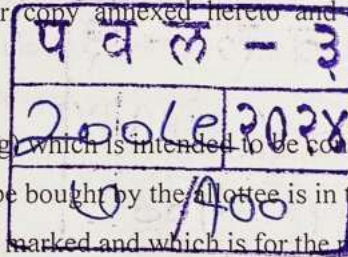 r copy annexed hereto and
प व ल - ३
2००८e २०२४
g) which is intended to be con
७ /१००
be bought by the allottee is in t
marked and which is for the